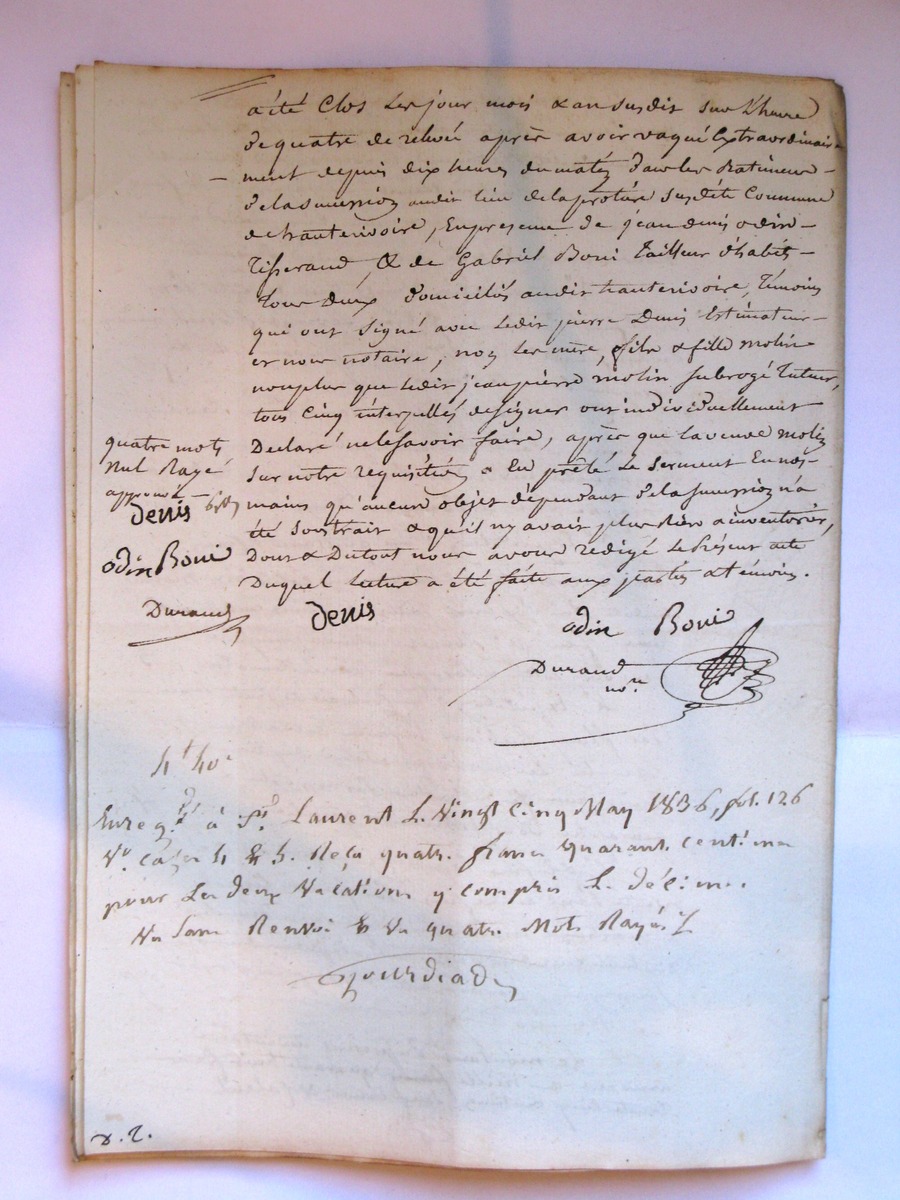 a été Clos Les jour mois & an susdit sur L'heure
de quatre de relevée après avoir vaqué Extraordinaire-
ment depuis dix heures du matin dans les Batimens
de la succession audit lieu de la susdite Commune
de hauterivoire, En presence de jean denis odin
Tisserand, & de Gabriel Boni Tailleur d'habits
Tous Deux domiciliés audit hauterivoire, Témoins
qui ont signé avec ledit pierre Denis Estimateur
et nous notaire, non Les mère, fils & fille molin
non plus que ledit jean pierre molin subrogé tuteur,
tous Cinq interpellés de signer ont individuellement
Declaré ne le savoir faire, après que la veuve molin
sur notre requisition a En prêté Le serment En nos
mains qu'aucun objet dépendant de la succession n'a
été soustrait & qu'il n'y avait plus Rien a inventorier,
Dont & Du tout nous avons redigé Le Présent acte
Duquel lecture a été faite aux parties & témoins.
quatre mots
nul Rayé
approuvé
Denis
odin Boni
Durand
Denis
odin Boni
Durand
no.re
4f 40c
Enreg.té à St. Laurent L. Vingt Cinq May 1836, fol. 126
Vo. Cases 4 & 5. Reçu quatr. francs quarant. centimes
pour Les deux Vacations y compris L. décime.
Vu sans Renvoi & Vu quatr. Mots Rayés